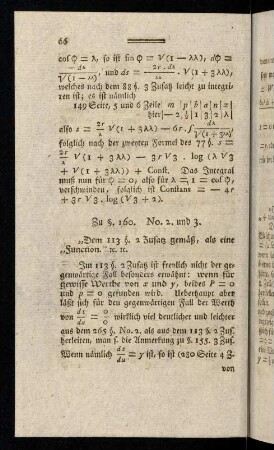 66
cos φ = λ, so ist sin φ = √(1 − λλ), dφ =
− dλ / √(1 − λλ), und ds = 2r · dλ / λλ · √(1 + 3λλ),
welches nach dem 88 §. 3 Zusatz leicht zu integri-
ren ist; es ist nämlich
149 Seite, 5 und 6 Zeile m | p | b | a | n | x |
hier | − 2, b | 1 | 3 | 2 | λ |
also s = 2r/λ √(1 + 3λλ) − 6r. ∫ dλ / √(1 + 3λλ)
folglich nach der zweyten Formel des 77 §. s =
2r/λ √(1 + 3λλ) − 3r√3 . log (λ√3
+ √(1 + 3λλ)) + Const. Das Integral
muß nun für φ = 0, also für λ = 1 = cos φ,
verschwinden; folglich ist Constans = − 4r
+ 3r√3. log (√3 + 2).
Zu §. 160. No. 2. und 3.
„Dem 113 §. 2 Zusatz gemäß, als eine
„Function." ic. ic.
Im 113 §. 2 Zusatz ist freylich nicht der ge-
genwärtige Fall besonders erwähnt: wenn für
gewisse Werthe von x und y, beides P = 0
und p = 0 gefunden wird. Ueberhaupt aber
läßt sich für den gegenwärtigen Fall der Werth
von dz/dx = 0/0 wirklich viel deutlicher und leichter
aus dem 265 §. No. 2. als aus dem 113 §. 2 Zus.
herleiten, man s. die Anmerkung zu §. 155. 3 Zus.
Wenn nämlich dz/du = y ist, so ist (280 Seite 4 Z.
von